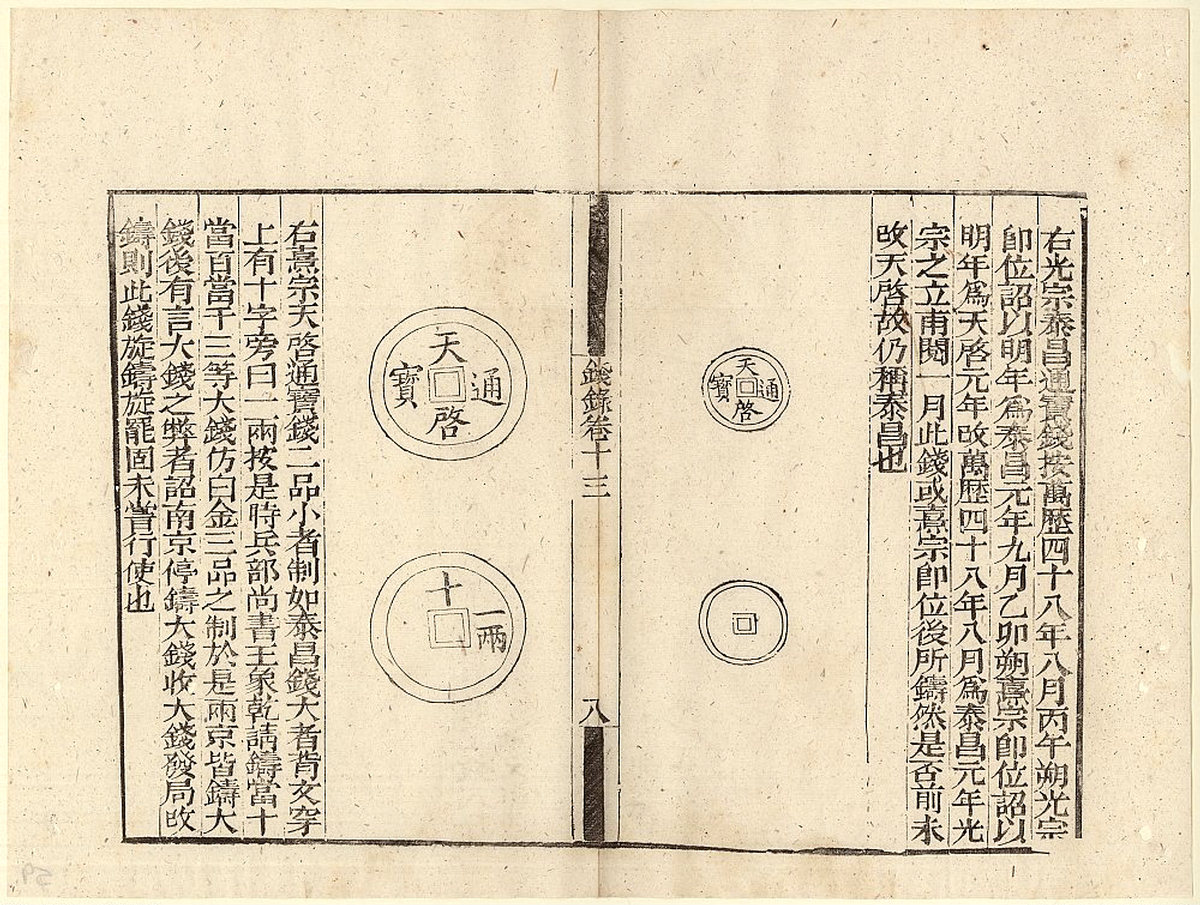 右光宗泰昌通寶錢按萬歴四十八年八月丙午朔光宗
卽位詔以明年爲泰昌元年九月乙卯朔熹宗卽位詔以
明年爲天啓元年改萬歴四十八年八月爲泰昌元年光
宗之立甫閱一月此錢或熹宗卽位後所鑄然是否前未
改天啓故仍稱泰昌也
天啓通寶
錢錄卷十三
八
天啓通寶
十
一兩
右熹宗天啓通寶錢二品小者制如泰昌錢大者背文穿
上有十字旁曰一兩按是時兵部尚書王象乾請鑄當十
當百當千三等大錢仿白金三品之制於是兩京皆鑄大
錢後有言大錢之弊者詔南京停鑄大錢收大錢發局改
鑄則此錢旋鑄旋罷固未嘗行使也
59